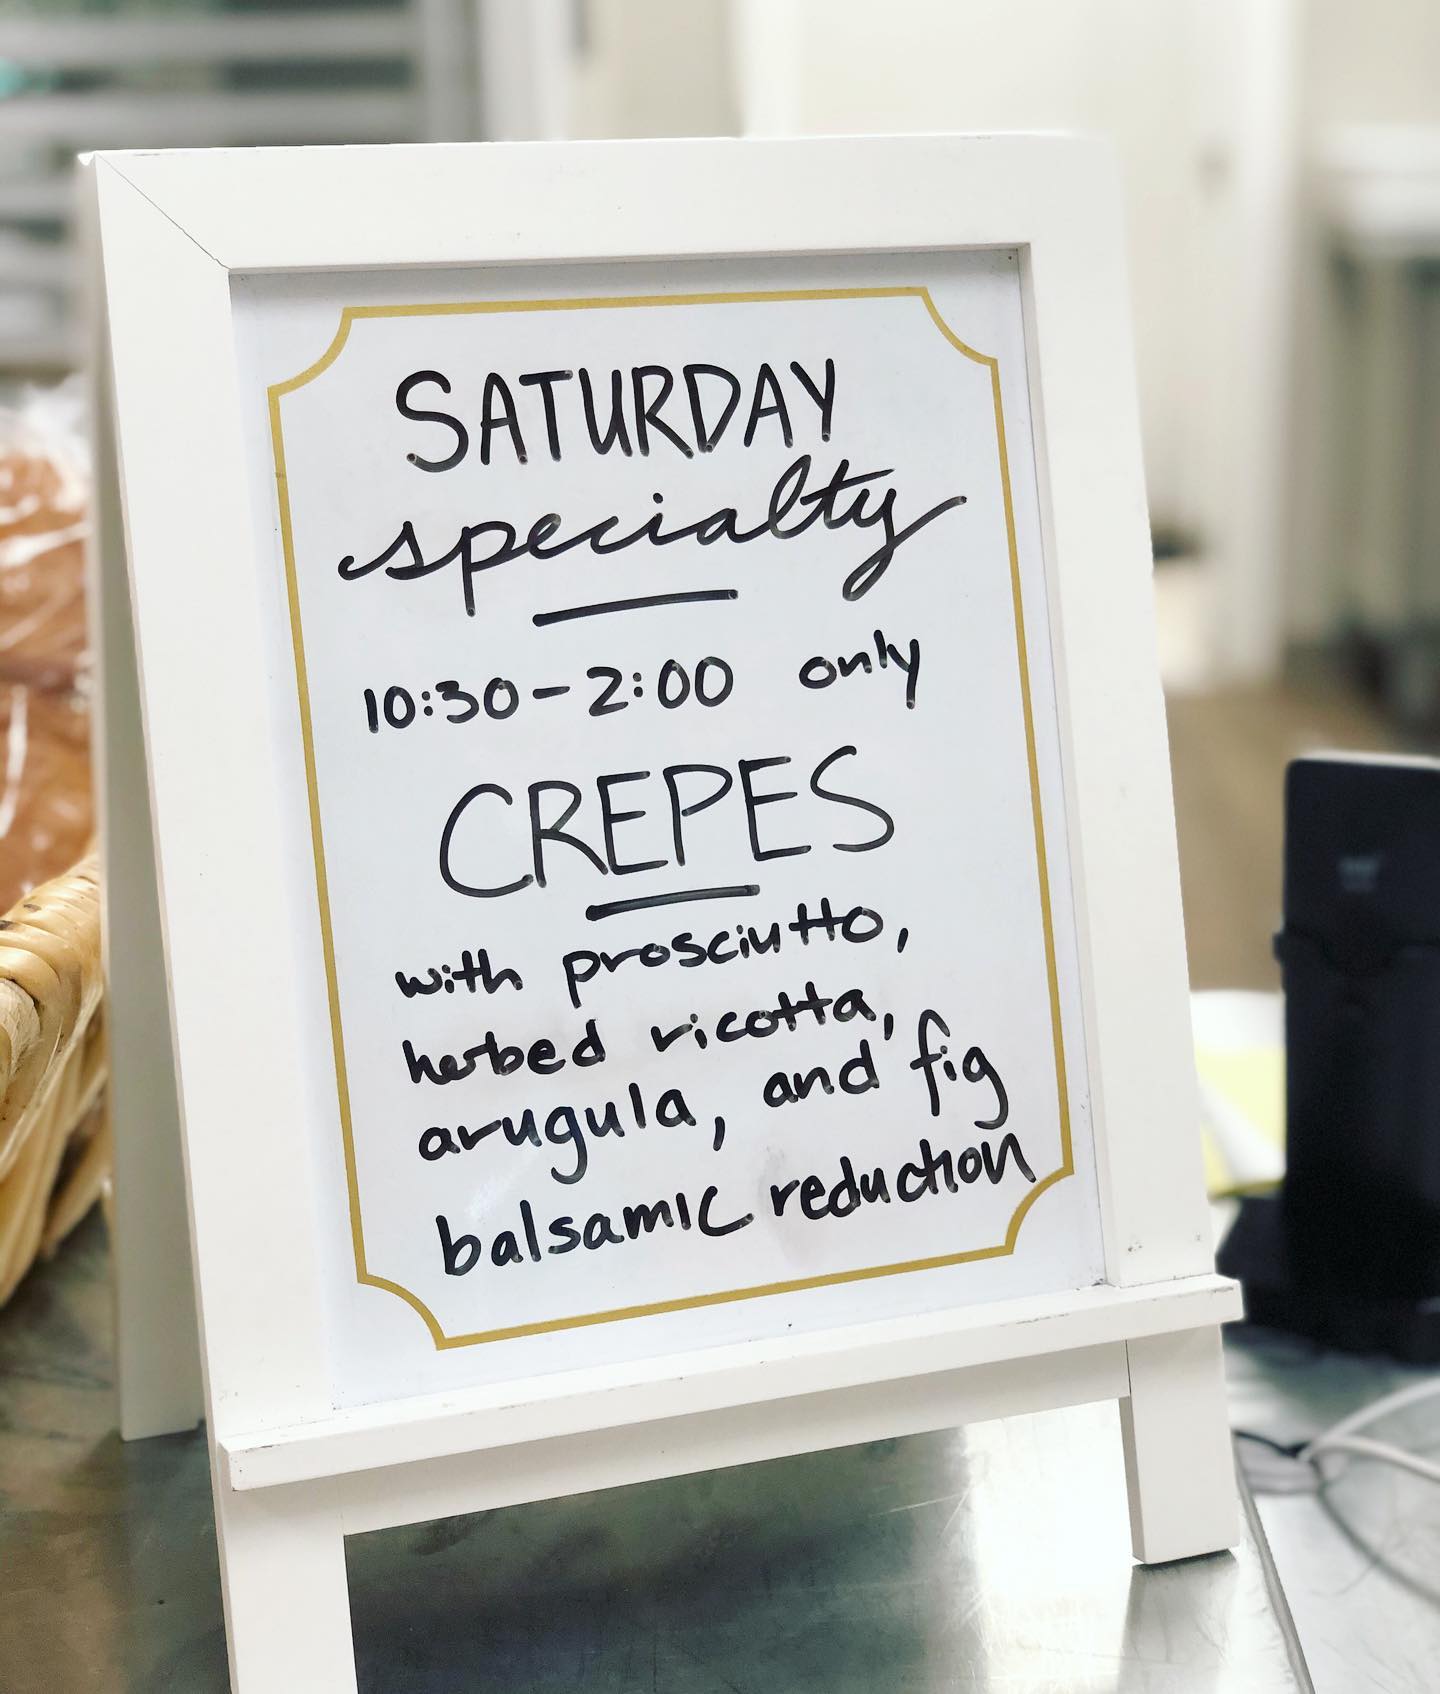 SATURDAY
specialty
10:30-2:00 only
CREPES
with prosciutto,
herbed ricotta,
arugula, and fig
balsamic reduction